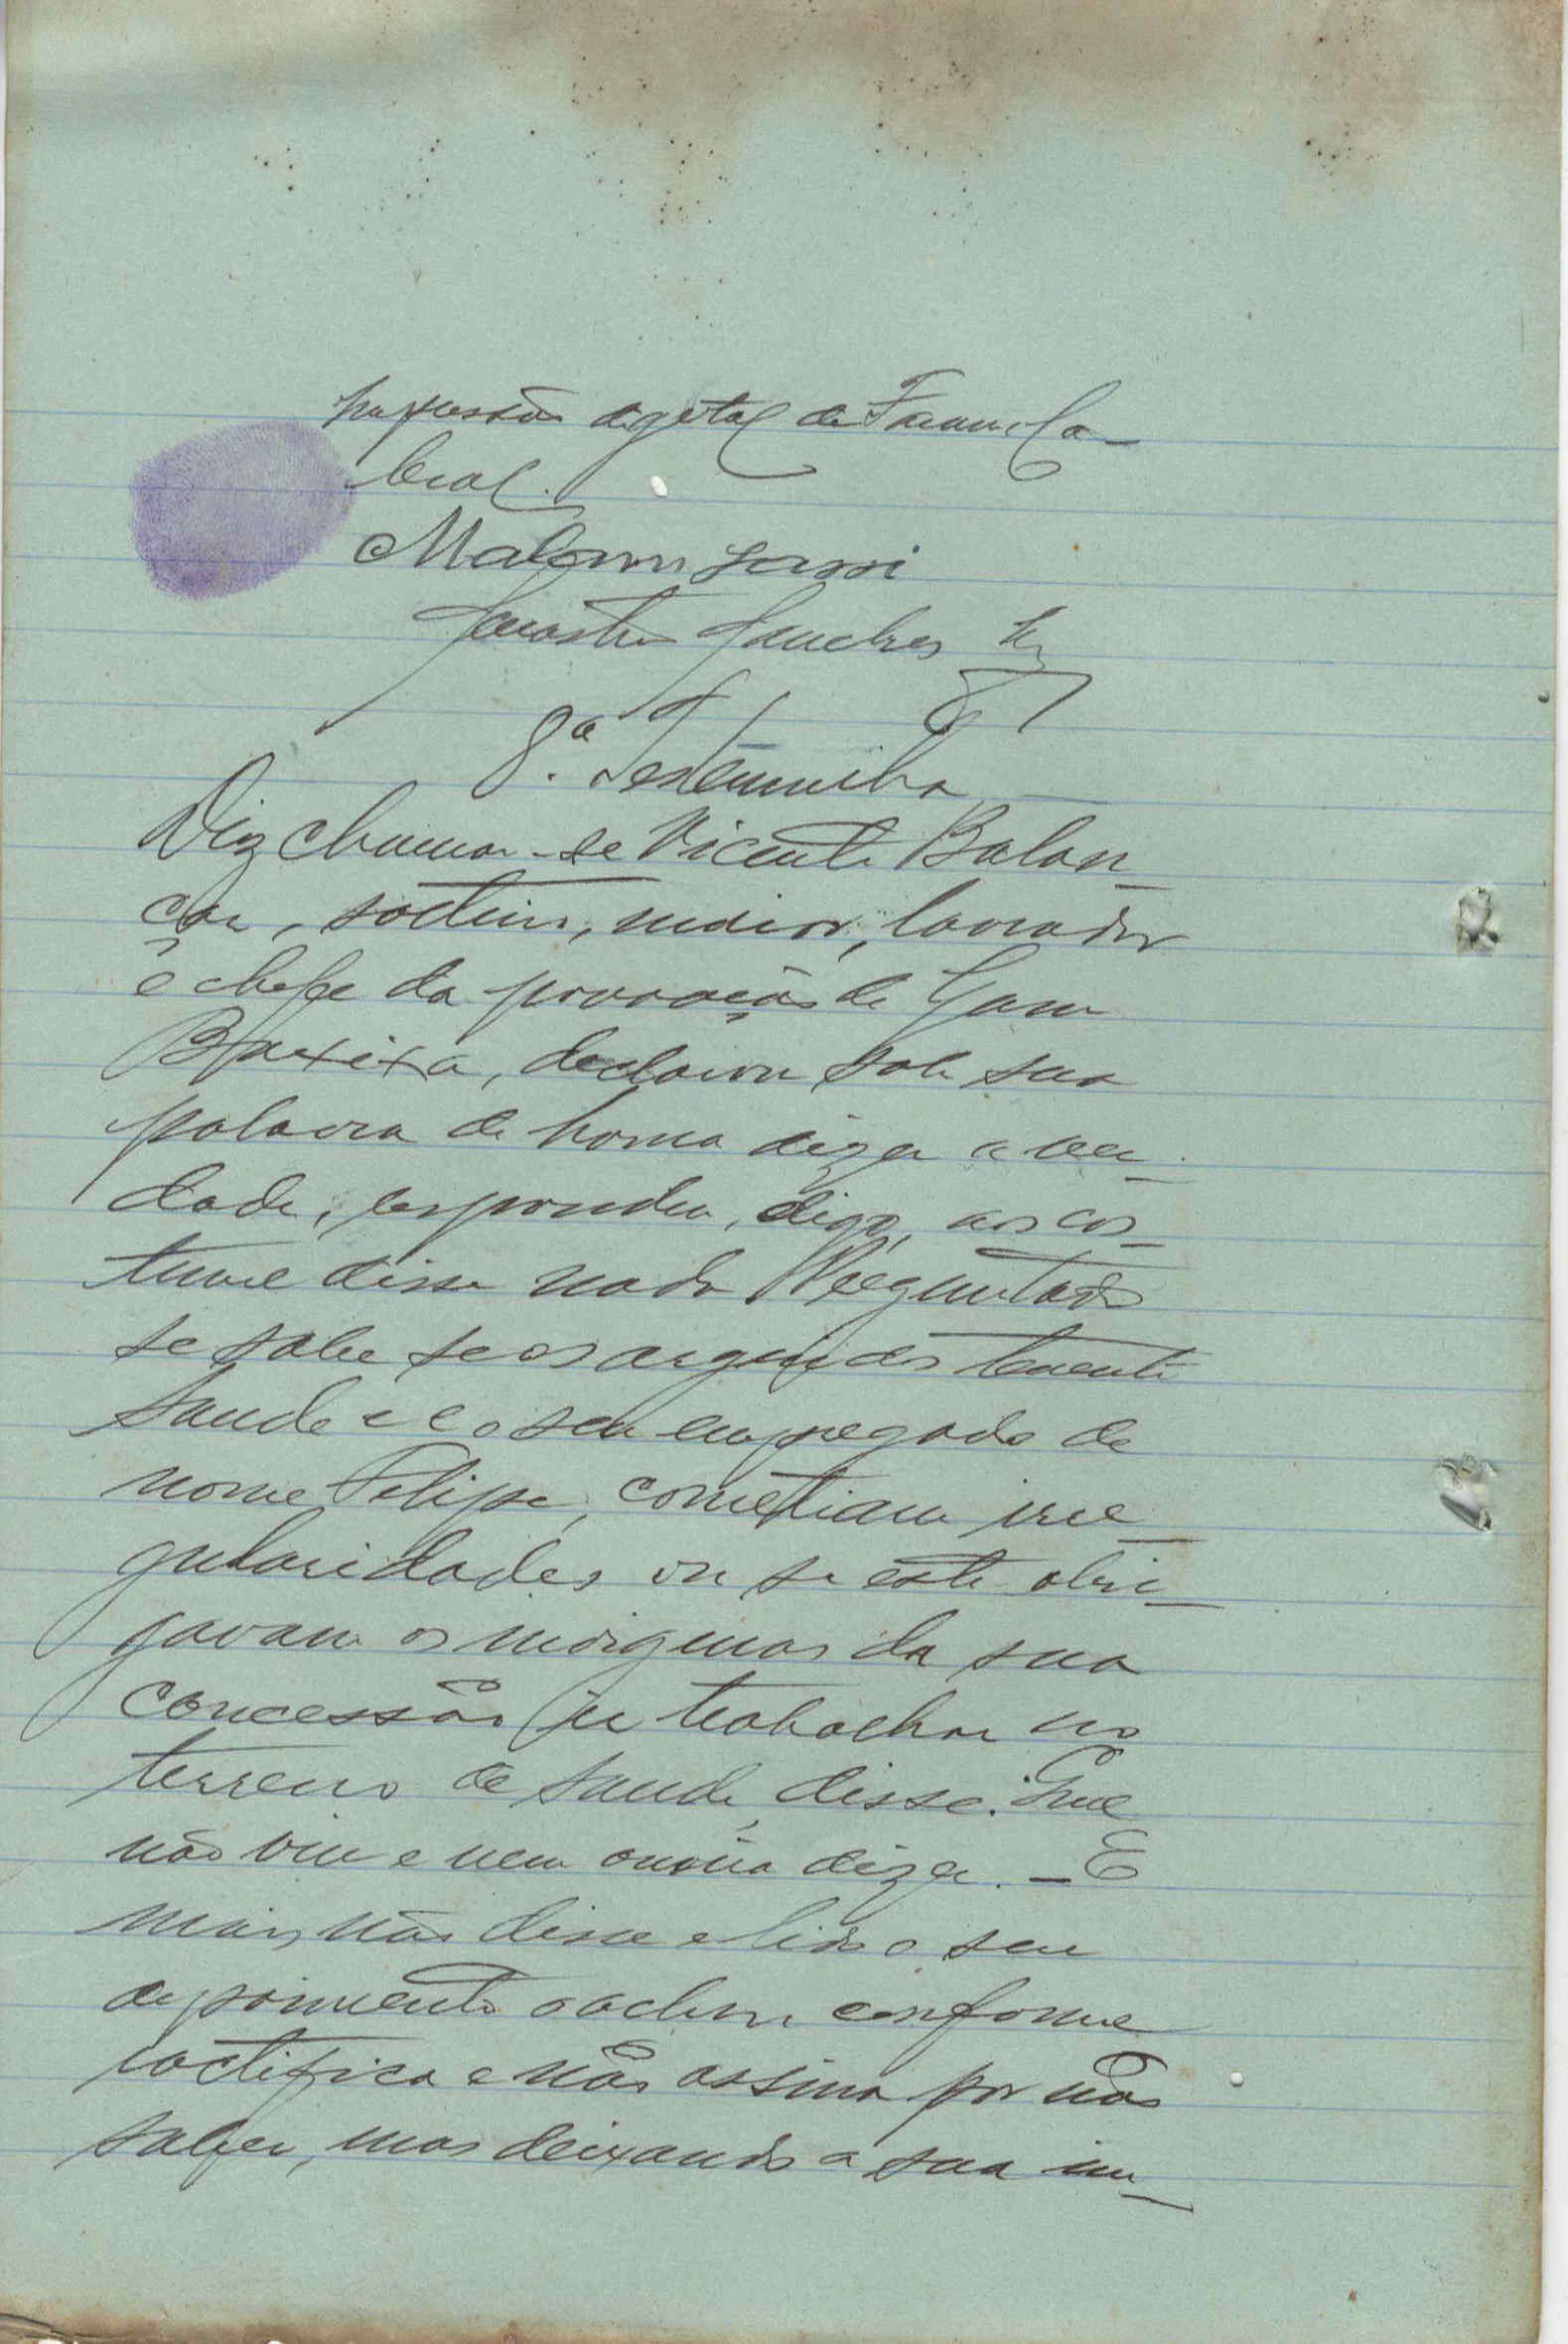 impressão digital de
bral.
8.ª Testemunha
Diz chamar-se Vicente Balan-
çar, solteiro, maior, lavrador
e chefe da povoação de
declarou sob sua
palavra de honra dizer a ver-
dade, respondeu, digo, aos cos-
tume disse nada Preguntado
se sabe se os arguidos tenente
Saude e e o seu empregado de
nome Felipe, cometiam irre-
gularidades ou se este obri-
gavam os indigenas da sua
concessão ir trabalhar no
terreno de Saude, disse: Que
não viu e nem ouviu dizer. — E
mais não disse e lido o seu
depoimento o achou conforme
ractifica e não assina por não
saber, mas deixando a sua im-